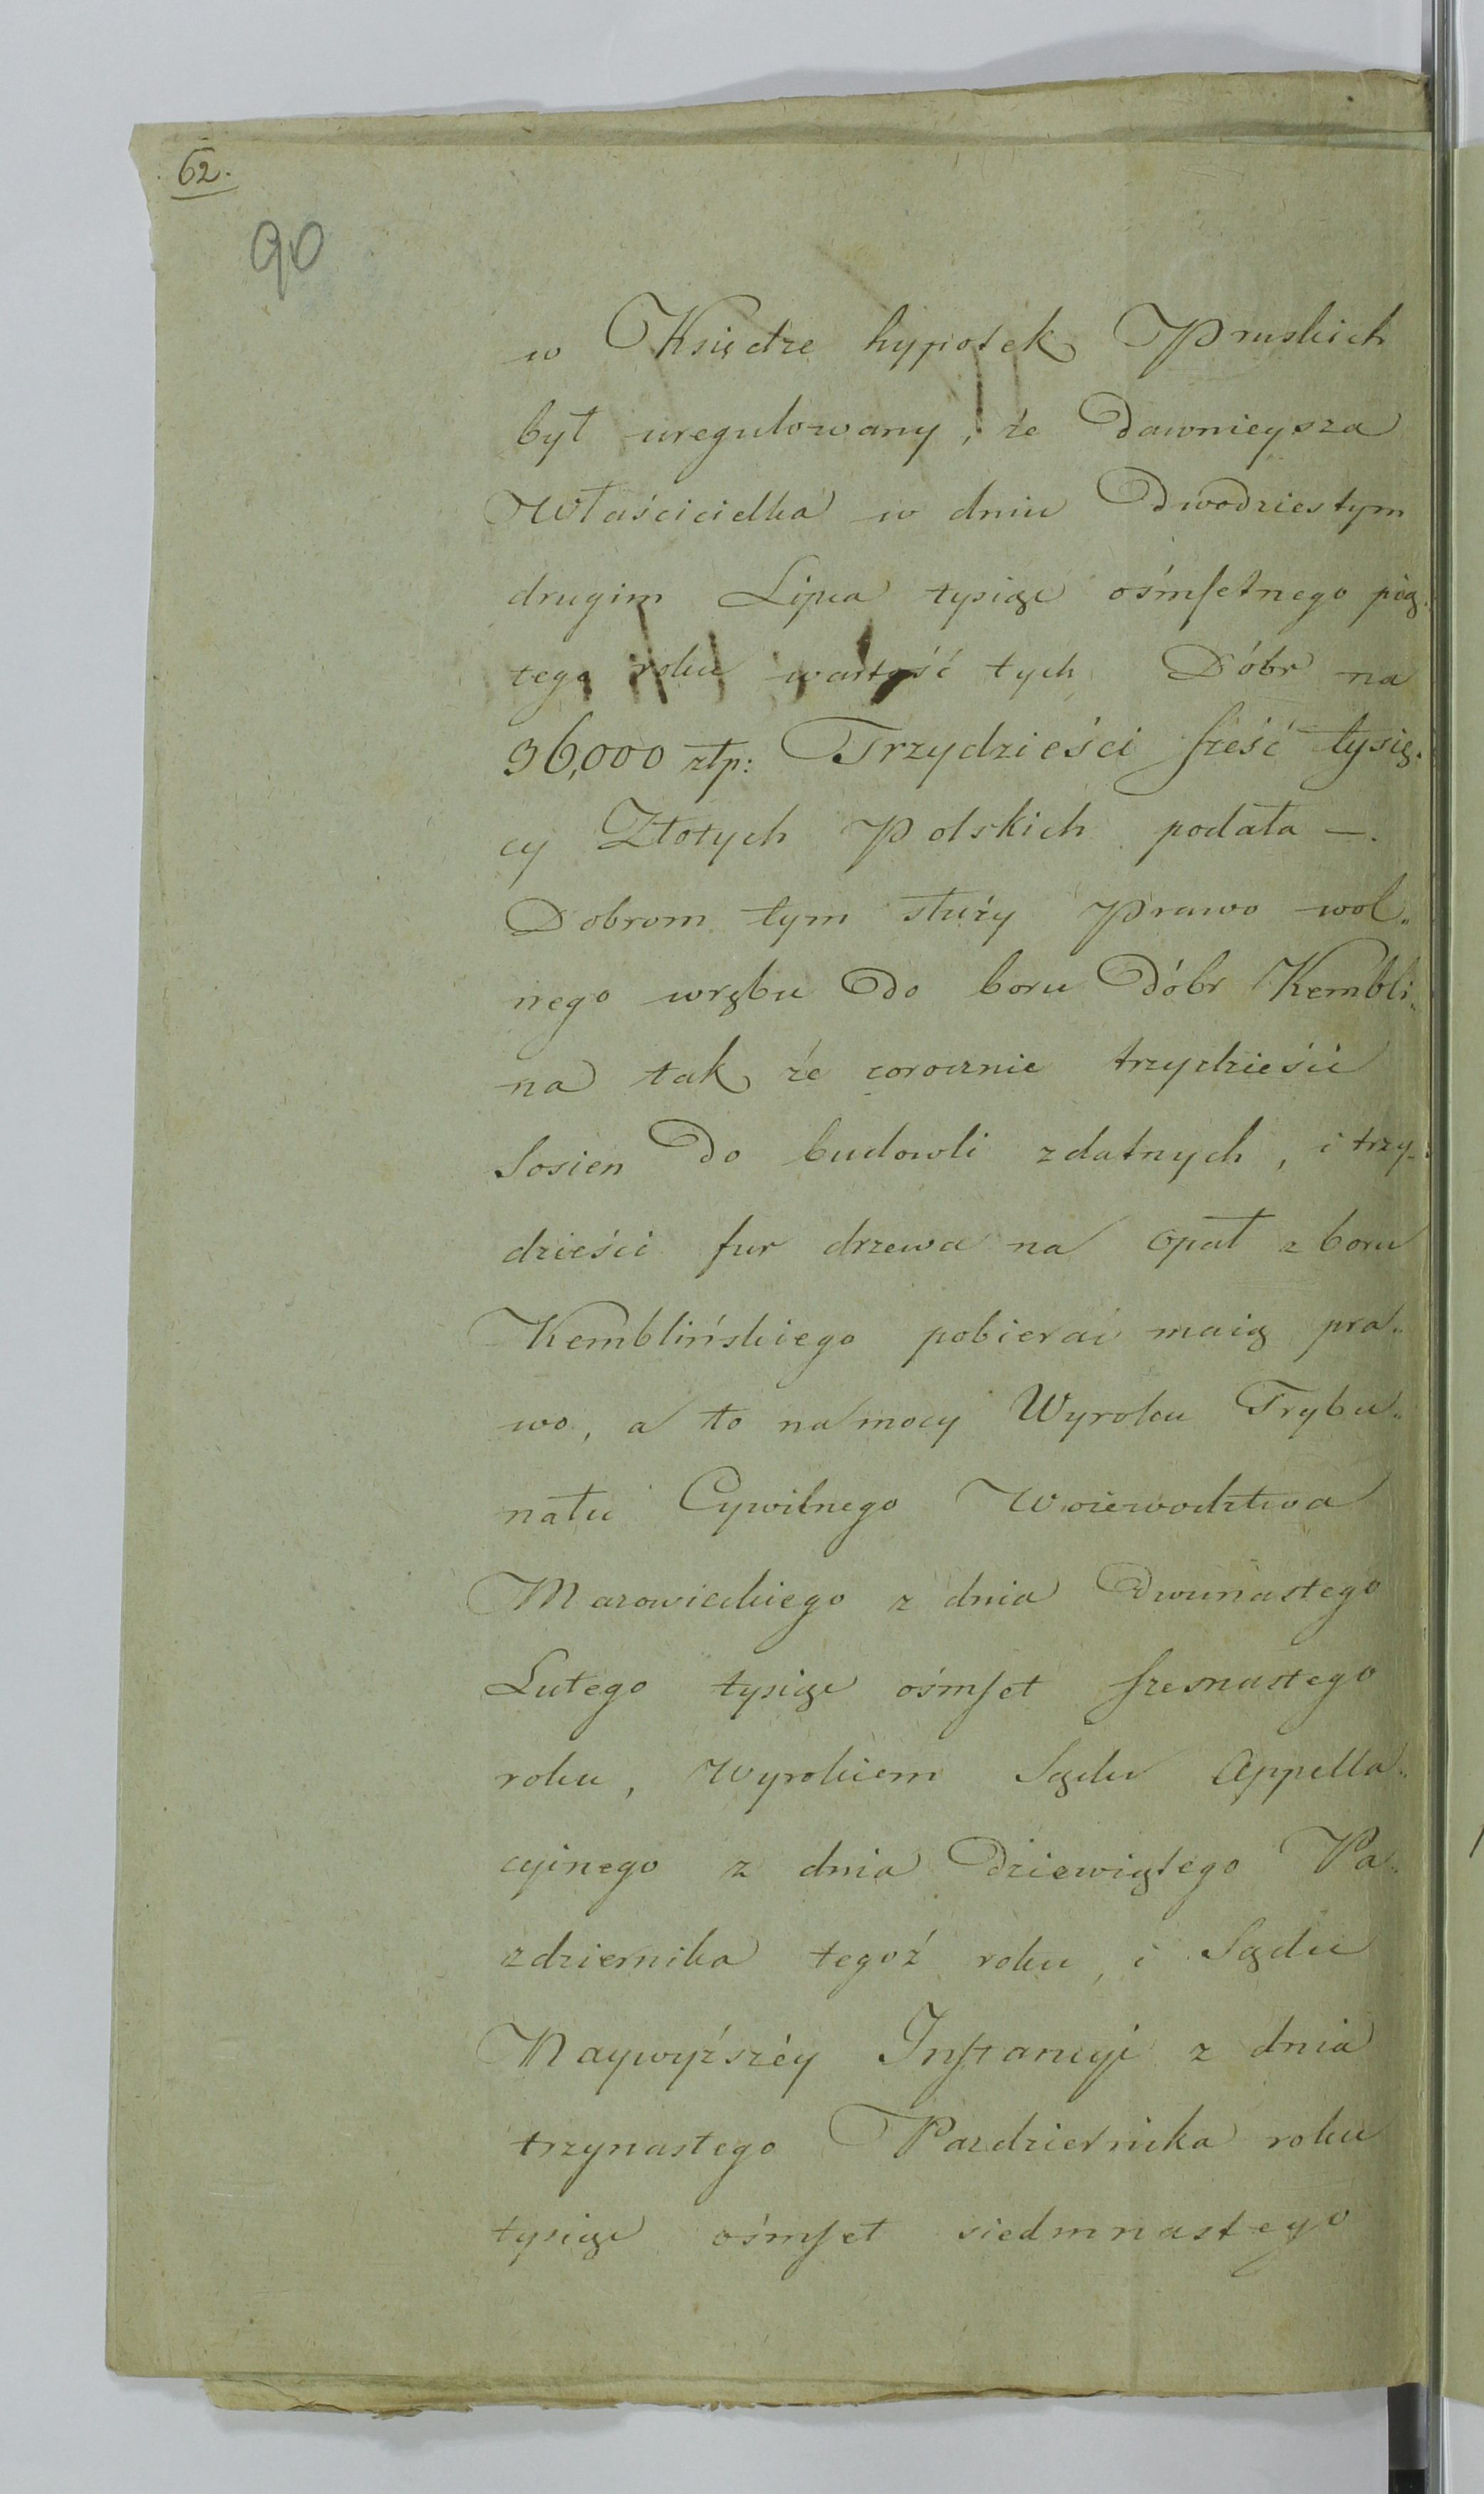 62.
90
w Księdze hypotek Pruskich
był uregulowany, że Dawnieysza
Właścicielka w dniu Dwodziestym
drugim Lipca tysiąc ośmsetnego pią„
tego roku wartość tych Dóbr na
36,000 złp: Trzydzieści sześć tysię„
cy Złotych Polskich podała —.
Dobrom tym służy Prawo wol„
nego wrębu Do boru Dóbr Kembli„
na tak że corocznie trzydzieści
Sosien Do budowli zdatnych, i trzy„
dzieści fur drzewa na opał z boru
Kemblińskiego pobierać maią pra„
wo, a to na mocy Wyroku Trybu„
nału Cywilnego Woiewodztwa
Mazowieckiego z dnia Dwunastego
Lutego tysiąc ośmset szesnastego
roku, Wyrokiem Sądu Appella„
cyinego z dnia Dziewiątego Pa„
zdziernika tegoż roku, i Sądu
Naywyższéy Instancyi z dnia
trzynastego Pazdziernika roku
tysiąc ośmset siedmnastego